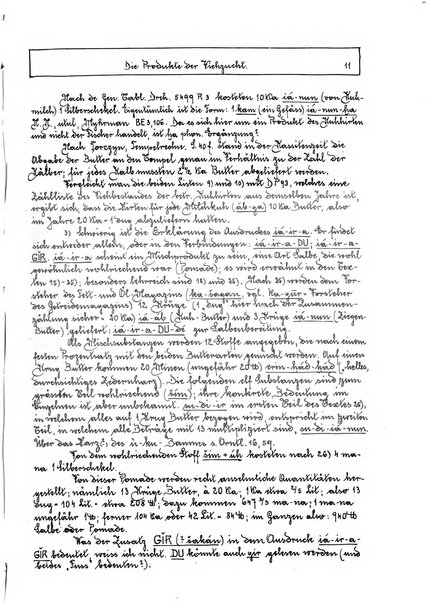 Die Produkte der Viehzucht. 11
Nach de Gen. Tabl. Dreh. 5499 R 3 kosteten 10 Ka iá-nun (von Kuh-
milch) 1 Silberschekel. Eigentümlich ist die Form: 1 kam (ein Gefäss) iá-nun-ha
Myhrman BE 3, 106. Da es sich hier um ein Produkt des Kuhhirten
und nicht der Fischer handelt, ist ha phon. Ergänzung?
Nach Torczyn, Tempelrechn. S. 40 f. stand in der Kassitenzeit die
Abgabe der Butter an den Tempel genau im Verhältnis zu der Zahl der
Kälber; für jedes Kalb mussten 2½ Ka Butter abgeliefert werden.
Vergleicht man die beiden Listen 9) und 10) mit DP 93, welches eine
Zählliste des Viehbestands der betr. Kuhhirten aus demselben Jahre ist,
ergibt sich, dass die Hirten für jede Milchkuh (áb-ga) 10 Ka Butter, also
im Jahre 20 Ka - 1 dug abzuliefern hatten.
3) Schwierig ist die Erklärung des Ausdruckes iá-ir-a. Er findet
sich entweder allein, oder in den Verbindungen: iá-ir-a-DU; iá-ir-a-
GIR. iá-ir-a scheint ein Mischprodukt zu sein, eine Art Salbe, die wohl
gewöhnlich wohlriechend war (Pomade); es wird erwähnt in den Tex-
ten 15)-25); besonders lehrreich sind 18) und 25). Nach 25) werden dem Vor-
steher des Fett- und Öl-Magazins (ka-šagan, vgl. ka-gùr = Vorsteher
des Getreidemagazins) 12 Krüge (1 „dug" hier nach der Zusammen-
zählung sicher = 20 Ka) iá-áb (Kuh-Butter) und 3 Krüge iá-nun (Ziegen-
Butter) geliefert: iá-ir-a-DU-dé zur Salbenbereitung.
Als Mischsubstanzen werden 12 Stoffe angegeben, die nach einem
festen Prozentsatz mit den beiden Butterarten gemischt werden. Auf einen
Krug Butter kommen 20 Minen (ungefähr 20 ℔) erin-bád-bád („helles,
durchsichtiges Zedernharz). Die folgenden elf Substanzen sind zum
grössten Teil wohlriechend (šim); ihre konkrete Bedeutung im
Einzelnen ist aber unbekannt. su-di-ir im ersten Teil des Textes 25),
in welchem alles auf 1 Krug Butter bezogen wird, entspricht im zweiten
Teil, in welchem alle Beträge mit 13 multipliziert sind, su-di-iá-nun.
Über das Harz? des ú-ku-Baumes s. Orntl. 16, 59.
Von dem wohlriechenden Stoff šim+úh kosteten nach 26) 4 ma-
na 1 Silberschekel.
Von dieser Pomade werden recht ansehnliche Quantitäten her-
gestellt; nämlich 13 Krüge Butter, à 20 Ka; 1 Ka etwa ⁴/₅ Lit., also 13
dug - 104 Lit. - etwa 208 ℔; dazu kommen 647 ⅔ ma-na; 1 ma-na
ungefähr 1 ℔; ferner 104 Ka oder 42 Lit. - 84 ℔; im Ganzen also: 940 ℔
Salbe oder Pomade.
Was der Zusatz GIR (? šakán) in dem Ausdruck iá-ir-a-
GIR bedeutet, weiss ich nicht. DU könnte auch gir gelesen werden (und
beides „Fuss" bedeuten?).